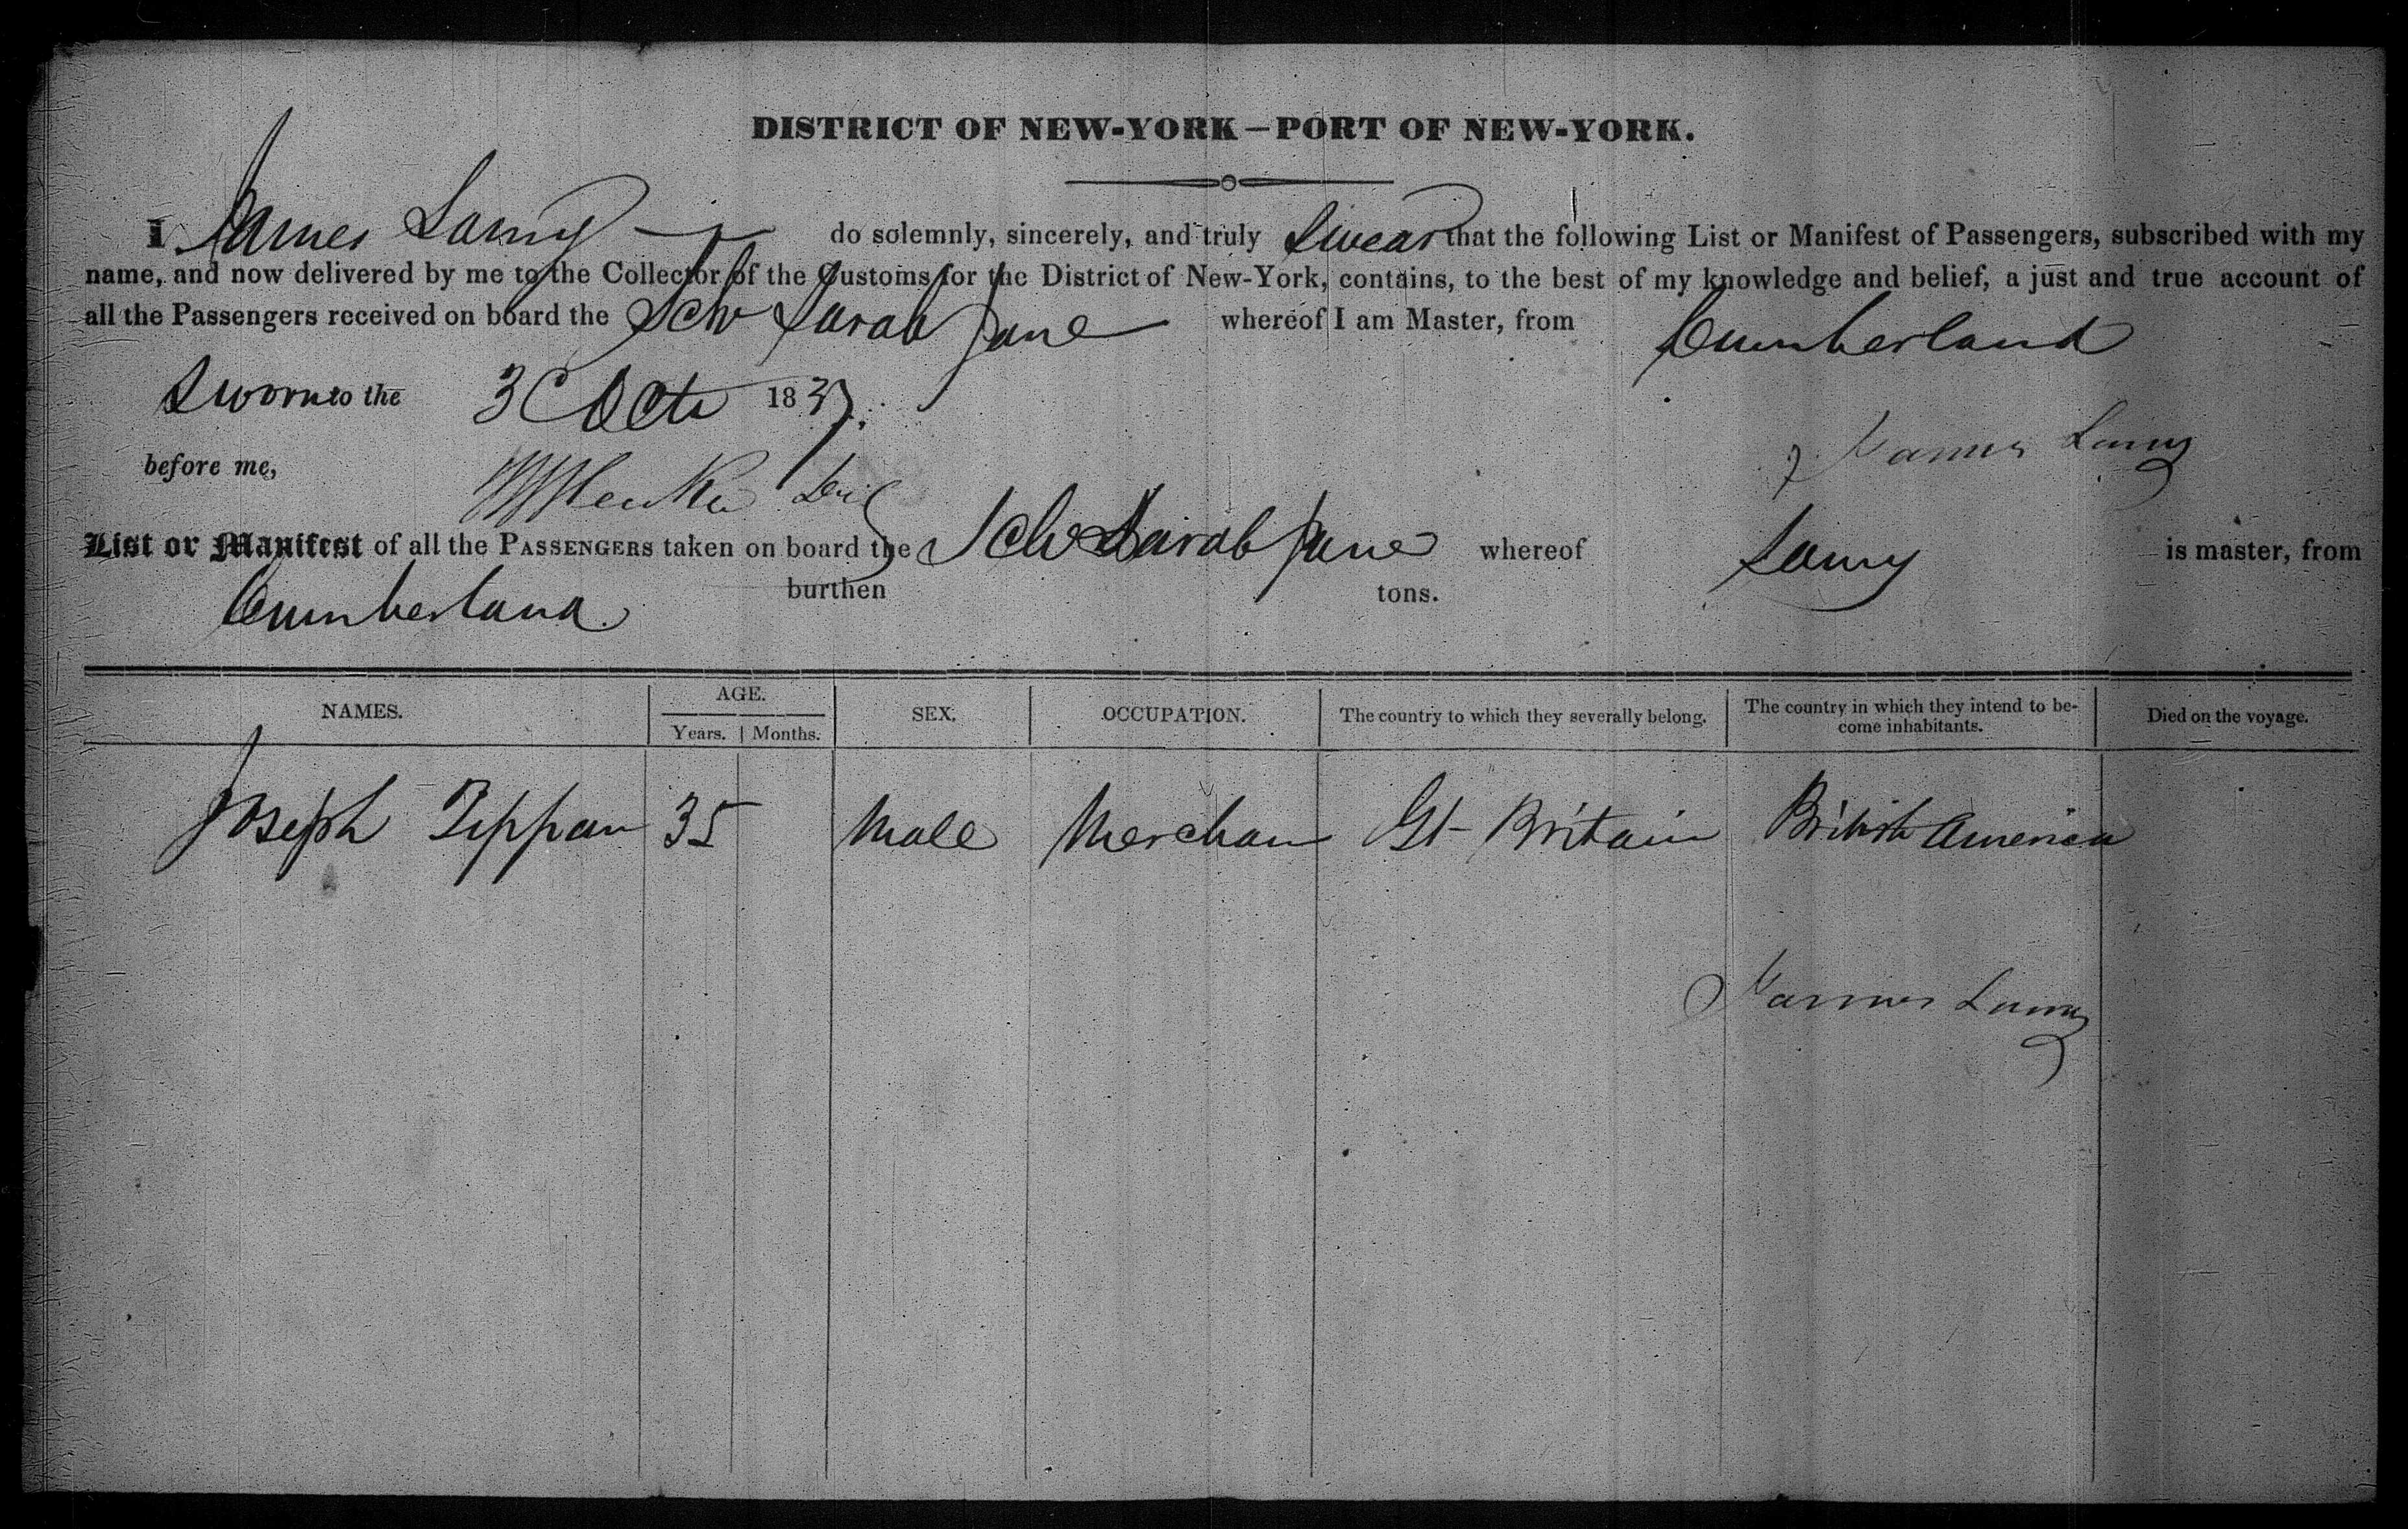 DISTRICT OF NEW-YORK—PORT OF NEW-YORK.
I James Lamy do solemnly, sincerely, and truly Swear that the following List or Manifest of Passengers, subscribed with my
name, and now delivered by me to the Collector of the Customs for the District of New-York, contains, to the best of my knowledge and belief, a just and true account of
all the Passengers received on board the Schr Sarah Jane whereof I am Master, from Cumberland
Sworn to the Oct 1837.
James Lamy
before me,
List or Manifest of all the PASSENGERS taken on board the Schr Sarah Jane whereof Lamy is master, from
Cumberland burthen tons.
NAMES. AGE. Years. Months. SEX. OCCUPATION. The country to which they severally belong. The country in which they intend to be-
come inhabitants. Died on the voyage.
Joseph Tippan 35 Male Merchan Gt Britain British America
James Lamy